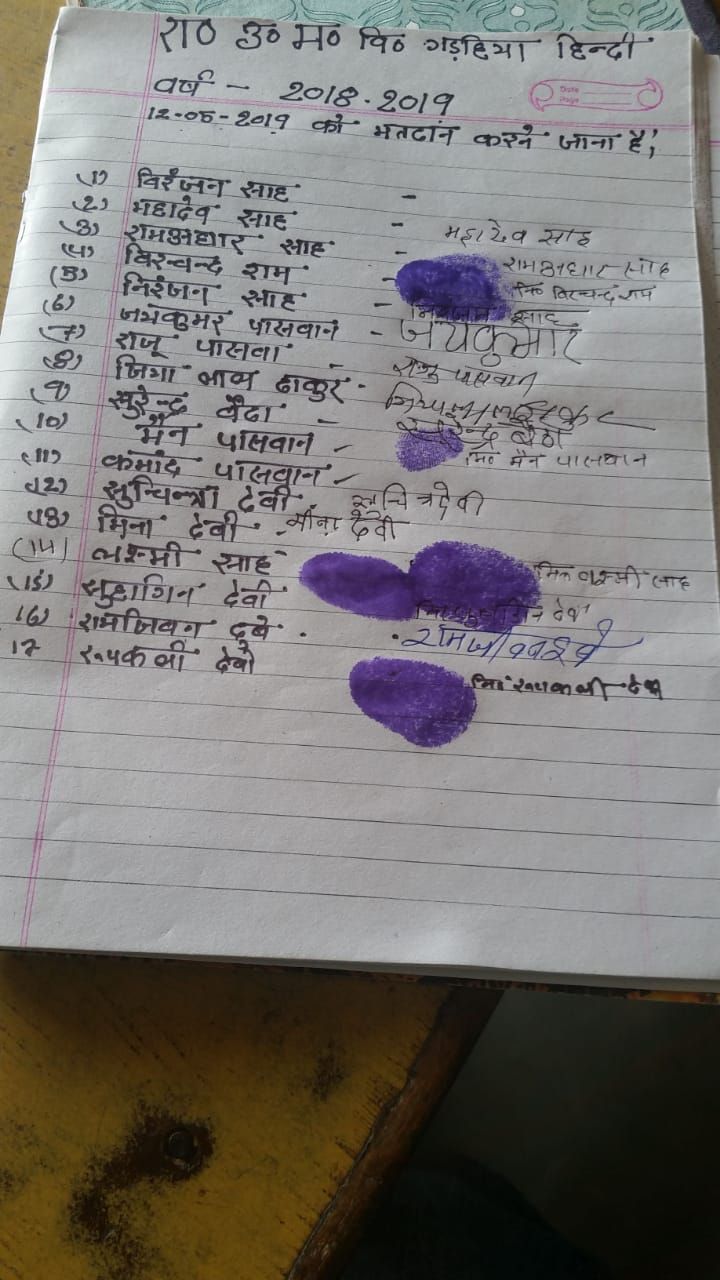 रा० उ० म० वि० गड़हिया हिन्दी
वर्ष - 2018-2019
Date
Page
12-05-2019 को मतदान करने जाना है,
(1) विरंजन साह -
(2) महादेव साह - महादेव साह
(3) रामअधार साह - रामअधार साह
(4) विरचन्द राम नि० विरचन्द राम
(5) निरंजन साह - साह
(6) जयकुमार पासवान - जयकुमार
(7) राजू पासवा राजु पासवान
(8) जिया लाल ठाकुर -
(9) सुरेन्द्र बैठा - सुरेन्द्र बैठा
(10) मैन पासवान - नि० मैन पासवान
(11) कमांद पासवान -
(12) सुचिन्त्रा देवी सुचित्रदेवी
(13) मिना देवी - मीना देवी
(14) लक्ष्मी साह नि० लक्ष्मी साह
(15) सुहागिन देवी देवी
16) रामजिवन दुबे . रामजीवन दुबे
17 रूपकली देवी नि० रूपकली देवी